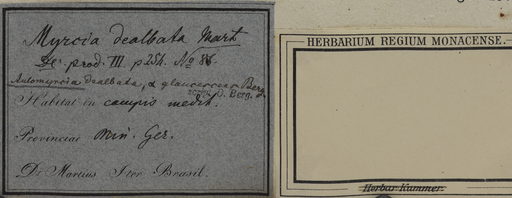 Myrcia dealbata Mart
De. prod. III. p 254. No 86.
Automyrcia dealbata, α glaucescens Berg.
scrips. O. Berg.
Habitat in campis medit.
Provinciae Min. Ger.
Dr Martius Iter Brasil.
HERBARIUM REGIUM MONACENSE.
Herbar Kummer.